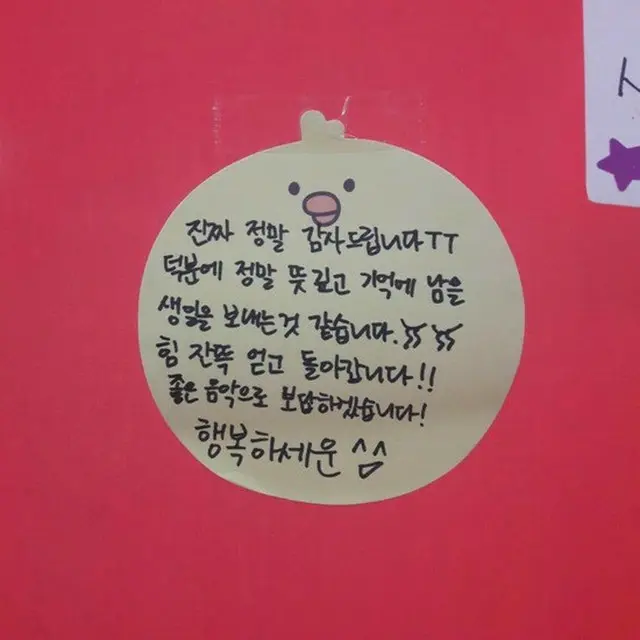 진짜 정말 감사드립니다TT
덕분에 정말 뜻깊고 기억에 남을
생일을 보내는것 같습니다.
힘 잔뜩 얻고 돌아갑니다!!
좋은 음악으로 보답하겠습니다!
행복하세운 ^^